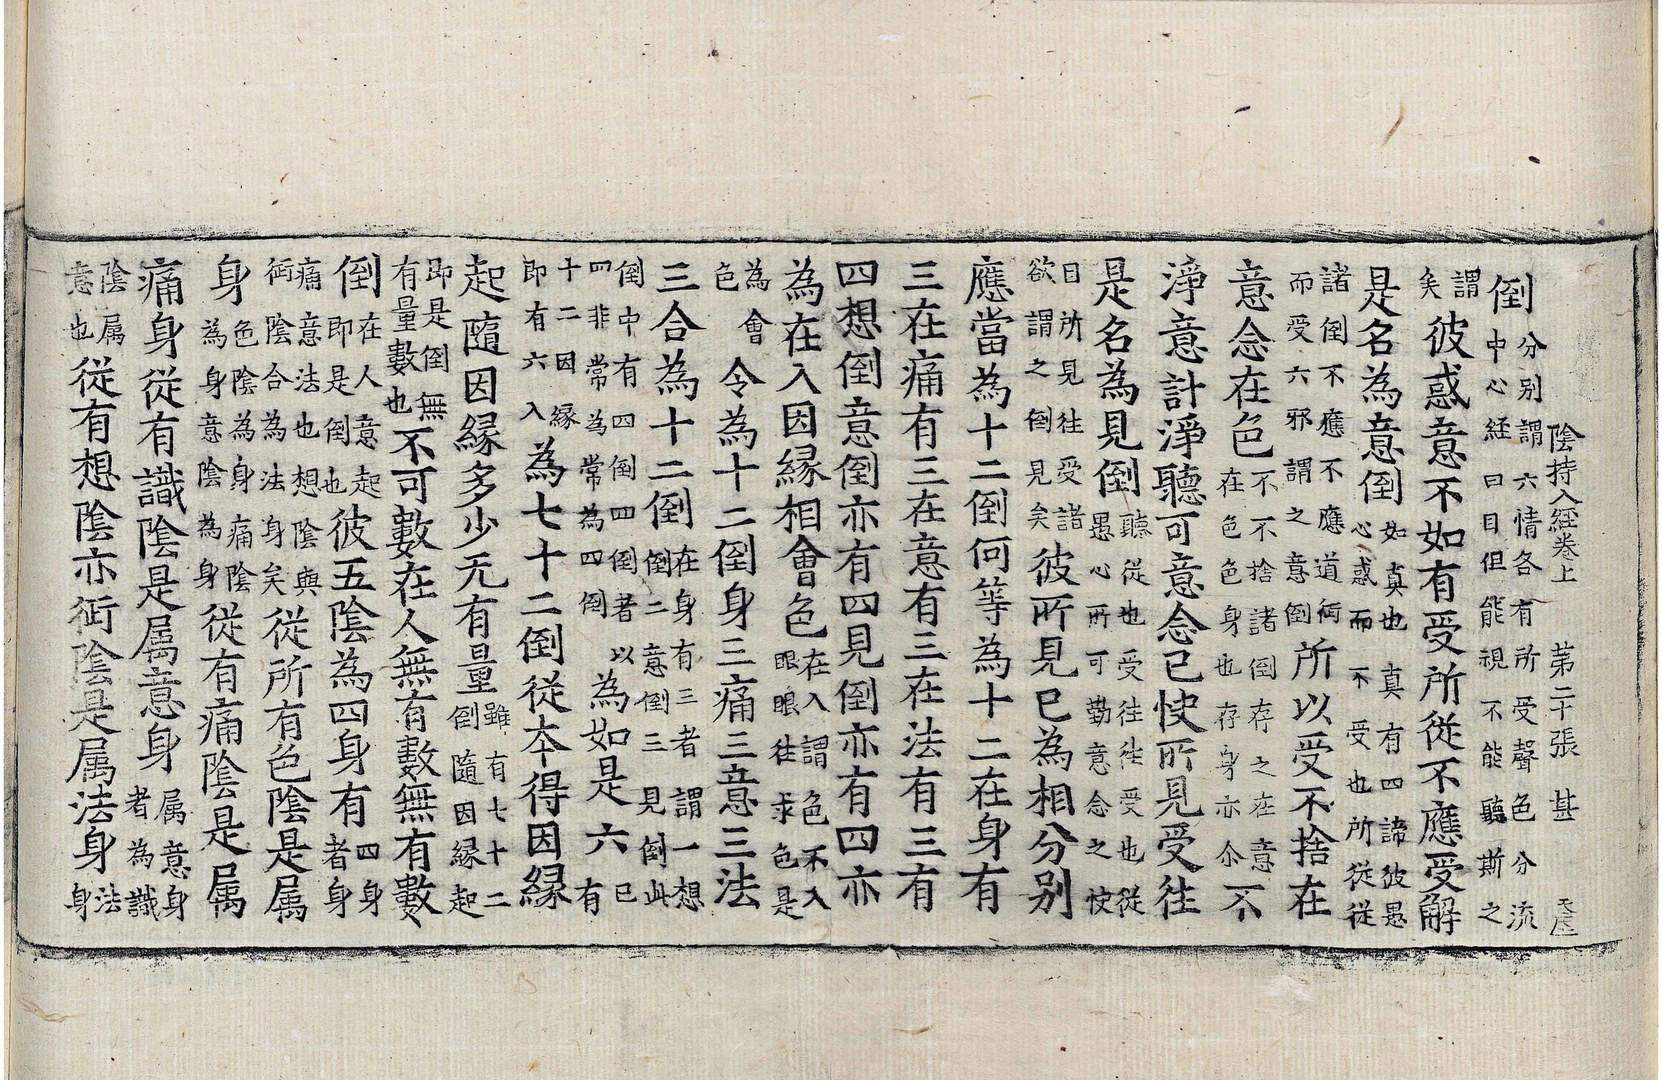 陰持入經卷上 第二十張 甚
倒分別謂六情各有所受聲色分流中心經曰目但能視不能聽斯之
謂矣彼惑意不如有受所從不應受解
是名為意倒如真也真有四諦彼愚心惑而不受也所從從
諸倒不應不應道行而受六邪謂之意倒所以受不捨在
意念在色不不捨諸倒存之在意在色色身也存身亦尒不
淨意計淨聽可意念已快所見受往
是名為見倒聽從也受往往受也從愚心所可勤意念之快
目所見往受諸欲謂之倒見矣彼所見已為相分別
應當為十二倒何等為十二在身有
三在痛有三在意有三在法有三有
四想倒意倒亦有四見倒亦有四亦
為在入因緣相會色在入謂色不入眼眼往求色是
為會色令為十二倒身三痛三意三法
三合為十二倒在身有三者謂一想倒二意倒三見倒此
倒中有四倒四倒者以四非常為常為四倒為如是六已有
十二因緣即有六入為七十二倒從本得因緣
起隨因緣多少无有量雖有七十二倒隨因緣起
即是倒無有量數也不可數在人無有數無有數
倒在人意起即是倒也彼五陰為四身有四身者身
痛意法也想陰與行陰合為法身矣從所有色陰是属
身色陰為身痛陰為身意陰為身從有痛陰是属
痛身從有識陰是属意身属意身者為識
陰属意也從有想陰亦行陰是属法身法身